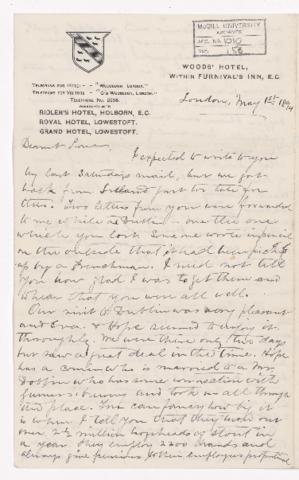 McGILL UNIVERSITY
ARCHIVES
ACC. NO. 1010
REF. 156
WOODS' HOTEL,
WITHIN FURNIVAL'S INN, E.C.
TELEPHONE NO.
RIDLER'S HOTEL, HOLBORN, E.C.
ROYAL HOTEL, LOWESTOFT.
GRAND HOTEL, LOWESTOFT.
London, May 1st 1894
Dearest
I expected to write to you
by last Saturday's mail, but we got
back from Ireland just too late for
this. Two letters from you were forwarded
to me while in Dublin - one the one
which you lost. Some one wrote
on the outside that it had been picked
up by a Frenchman. I need not tell
you how glad I was to get them and
to hear that you were all well.
Our visit to Dublin was very pleasant
and Eva & Hope seemed to enjoy it
thoroughly. We were there only two days
but saw a great deal in the time. Hope
has a cousin who is married to a Mr.
who has some connection with
brewery and took us all through
the place. You can fancy how big it
is when I tell you that they turn out
over 2½ million hogsheads of stout in
a year. They employ 2200 hands and
always give pensions to their employees